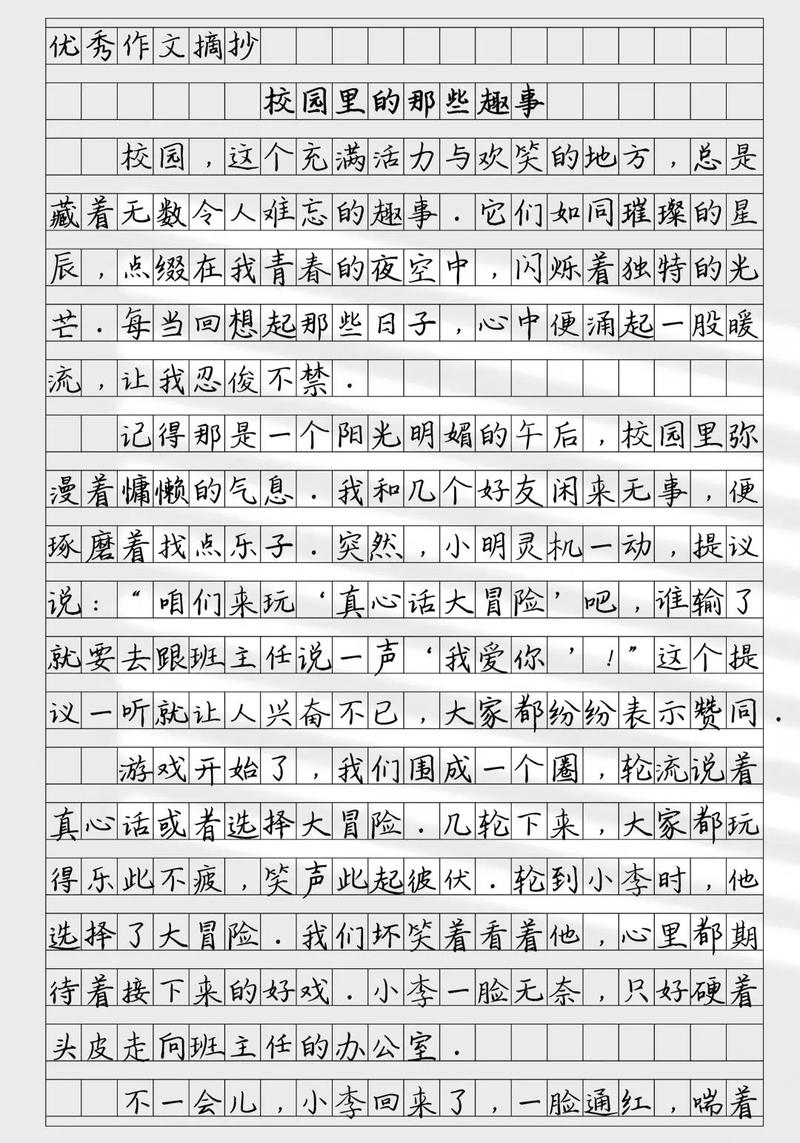 优秀作文摘抄
校园里的那些趣事
校园，这个充满活力与欢笑的地方，总是
藏着无数令人难忘的趣事．它们如同璀璨的星
辰，点缀在我青春的夜空中，闪烁着独特的光
芒．每当回想起那些日子，心中便涌起一股暖
流，让我忍俊不禁．
记得那是一个阳光明媚的午后，校园里弥
漫着慵懒的气息．我和几个好友闲来无事，便
琢磨着找点乐子．突然，小明灵机一动，提议
说：“咱们来玩‘真心话大冒险’吧，谁输了
就要去跟班主任说一声‘我爱你’！”这个提
议一听就让人兴奋不已，大家都纷纷表示赞同．
游戏开始了，我们围成一个圈，轮流说着
真心话或者选择大冒险．几轮下来，大家都玩
得乐此不疲，笑声此起彼伏．轮到小李时，他
选择了大冒险．我们坏笑着看着他，心里都期
待着接下来的好戏．小李一脸无奈，只好硬着
头皮走向班主任的办公室．
不一会儿，小李回来了，一脸通红，喘着